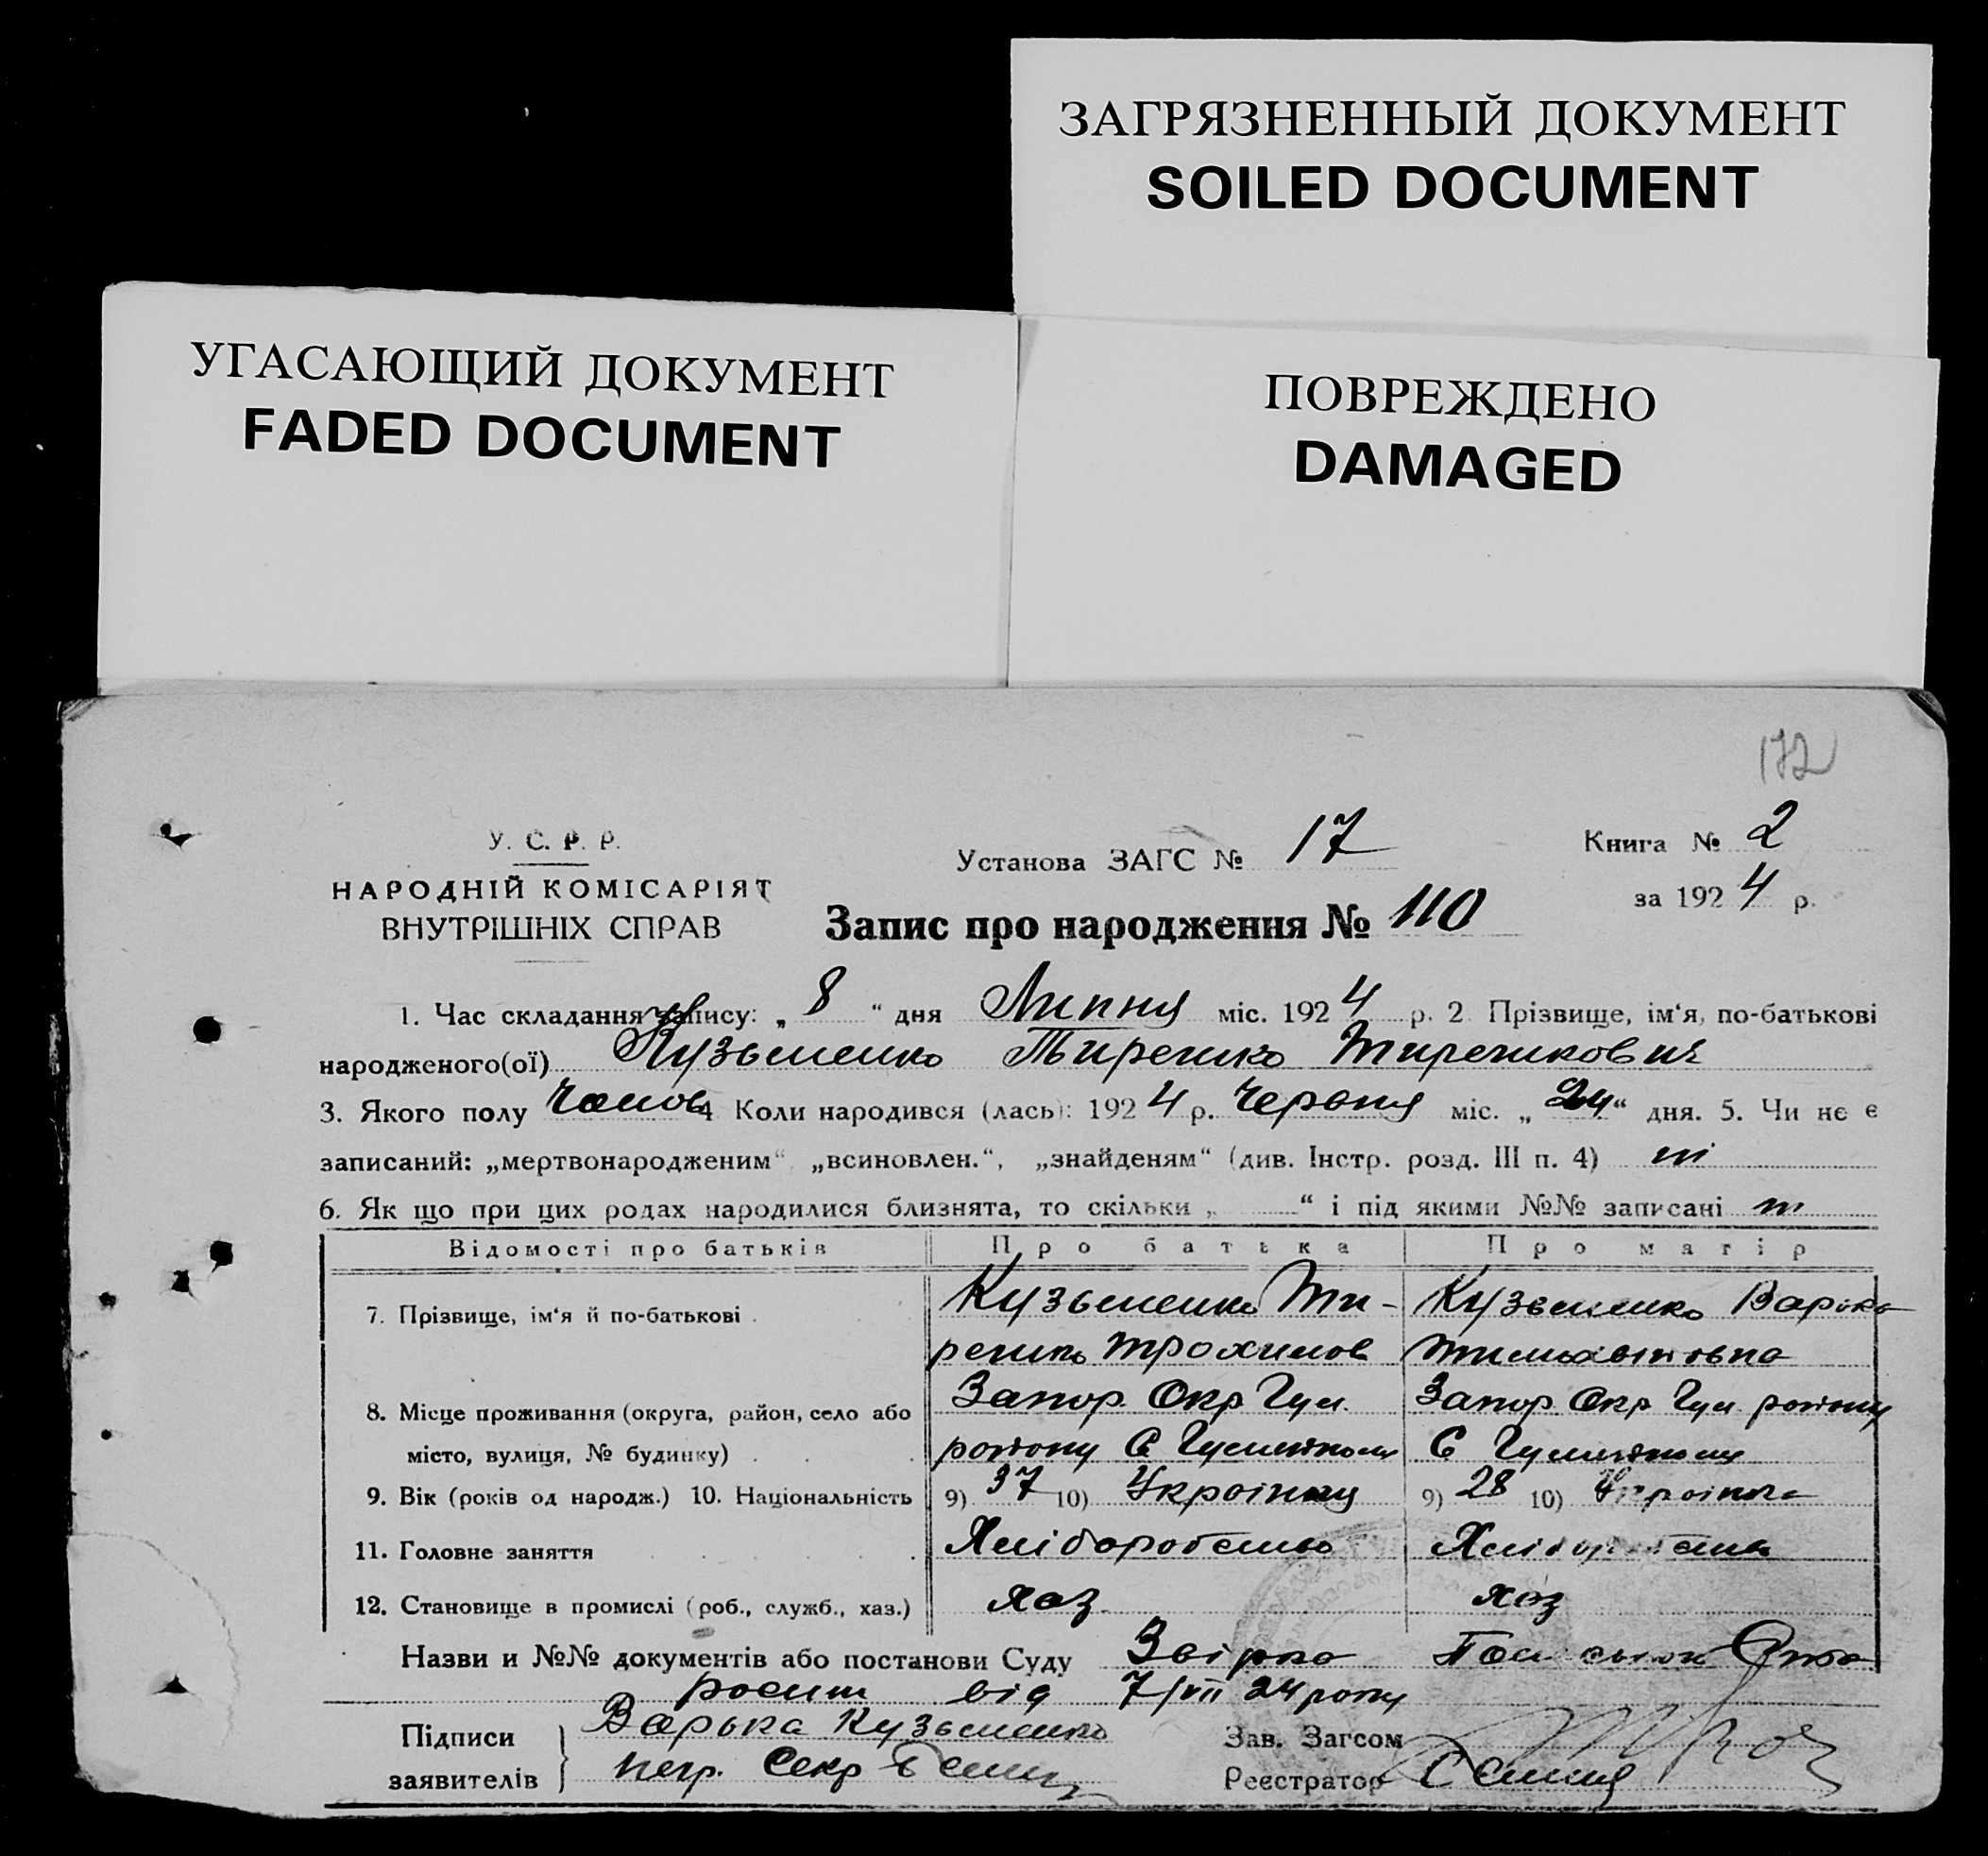 ЗАГРЯЗНЕННЫЙ ДОКУМЕНТ
SOILED DOCUMENT
УГАСАЮЩИЙ ДОКУМЕНТ
FADED DOCUMENT
ПОВРЕЖДЕНО
DAMAGED
172
У. С. Р. Р.
НАРОДНІЙ КОМІСАРІЯТ
ВНУТРІШНІХ СПРАВ
Установа ЗАГС № 17
Книга № 2
за 1924 р.
Запис про народження № 110
1. Час складання запису: „ 8 “ дня Липня міс. 1924 р. 2 Прізвище, ім‘я, по-батькові
народженого(ої) Кузьменко Тирешко Тирешкович
3. Якого полу Чолов 4 Коли народився (лась): 1924 р. Червня міс. „ 24 “ дня. 5. Чи не є
записаний: „мертвонародженим“ „всиновлен.“, „знайденям“ (див. Інстр. розд. III п. 4) ні
6. Як що при цих родах народилися близнята, то скільки „ “ і під якими №№ записані
Відомості про батьків Про батька Про матір
7. Прізвище, ім‘я й по-батькові . Кузьменко Ти- Кузьменко Варька
решко Трохимов
8. Місце проживання (округа, район, село або Запор. Окр Гул. Запор. Окр Гул. району
місто, вулиця, № будинку) . району С
9. Вік (років од народж.) 10. Національність 9) 37 10) Українец 9) 28 10) Українка
11. Головне заняття Хліборобство Хліборобство
12. Становище в промислі (роб., служб., хаз.) хаз. хаз
Назви и №№ документів або постанови Суду Звірка
від 7/VII 24 року
Підписи Варька Кузьменко Зав. Загсом
заявителів Секр Реєстратор